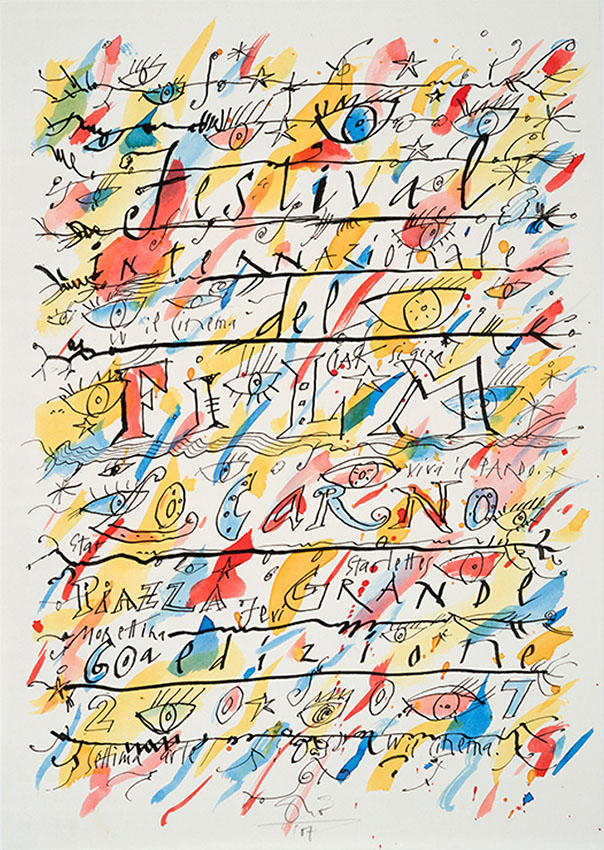 Festival
INTERNAZIONALE
il cinema
del
CIAK si gira!
FILM
VIVA il PARDO
LOCARNO
Star
Starlettes
PIAZZA GRANDE
60a edizione
2 0 0 7
settima arte
W il cinema!
'07